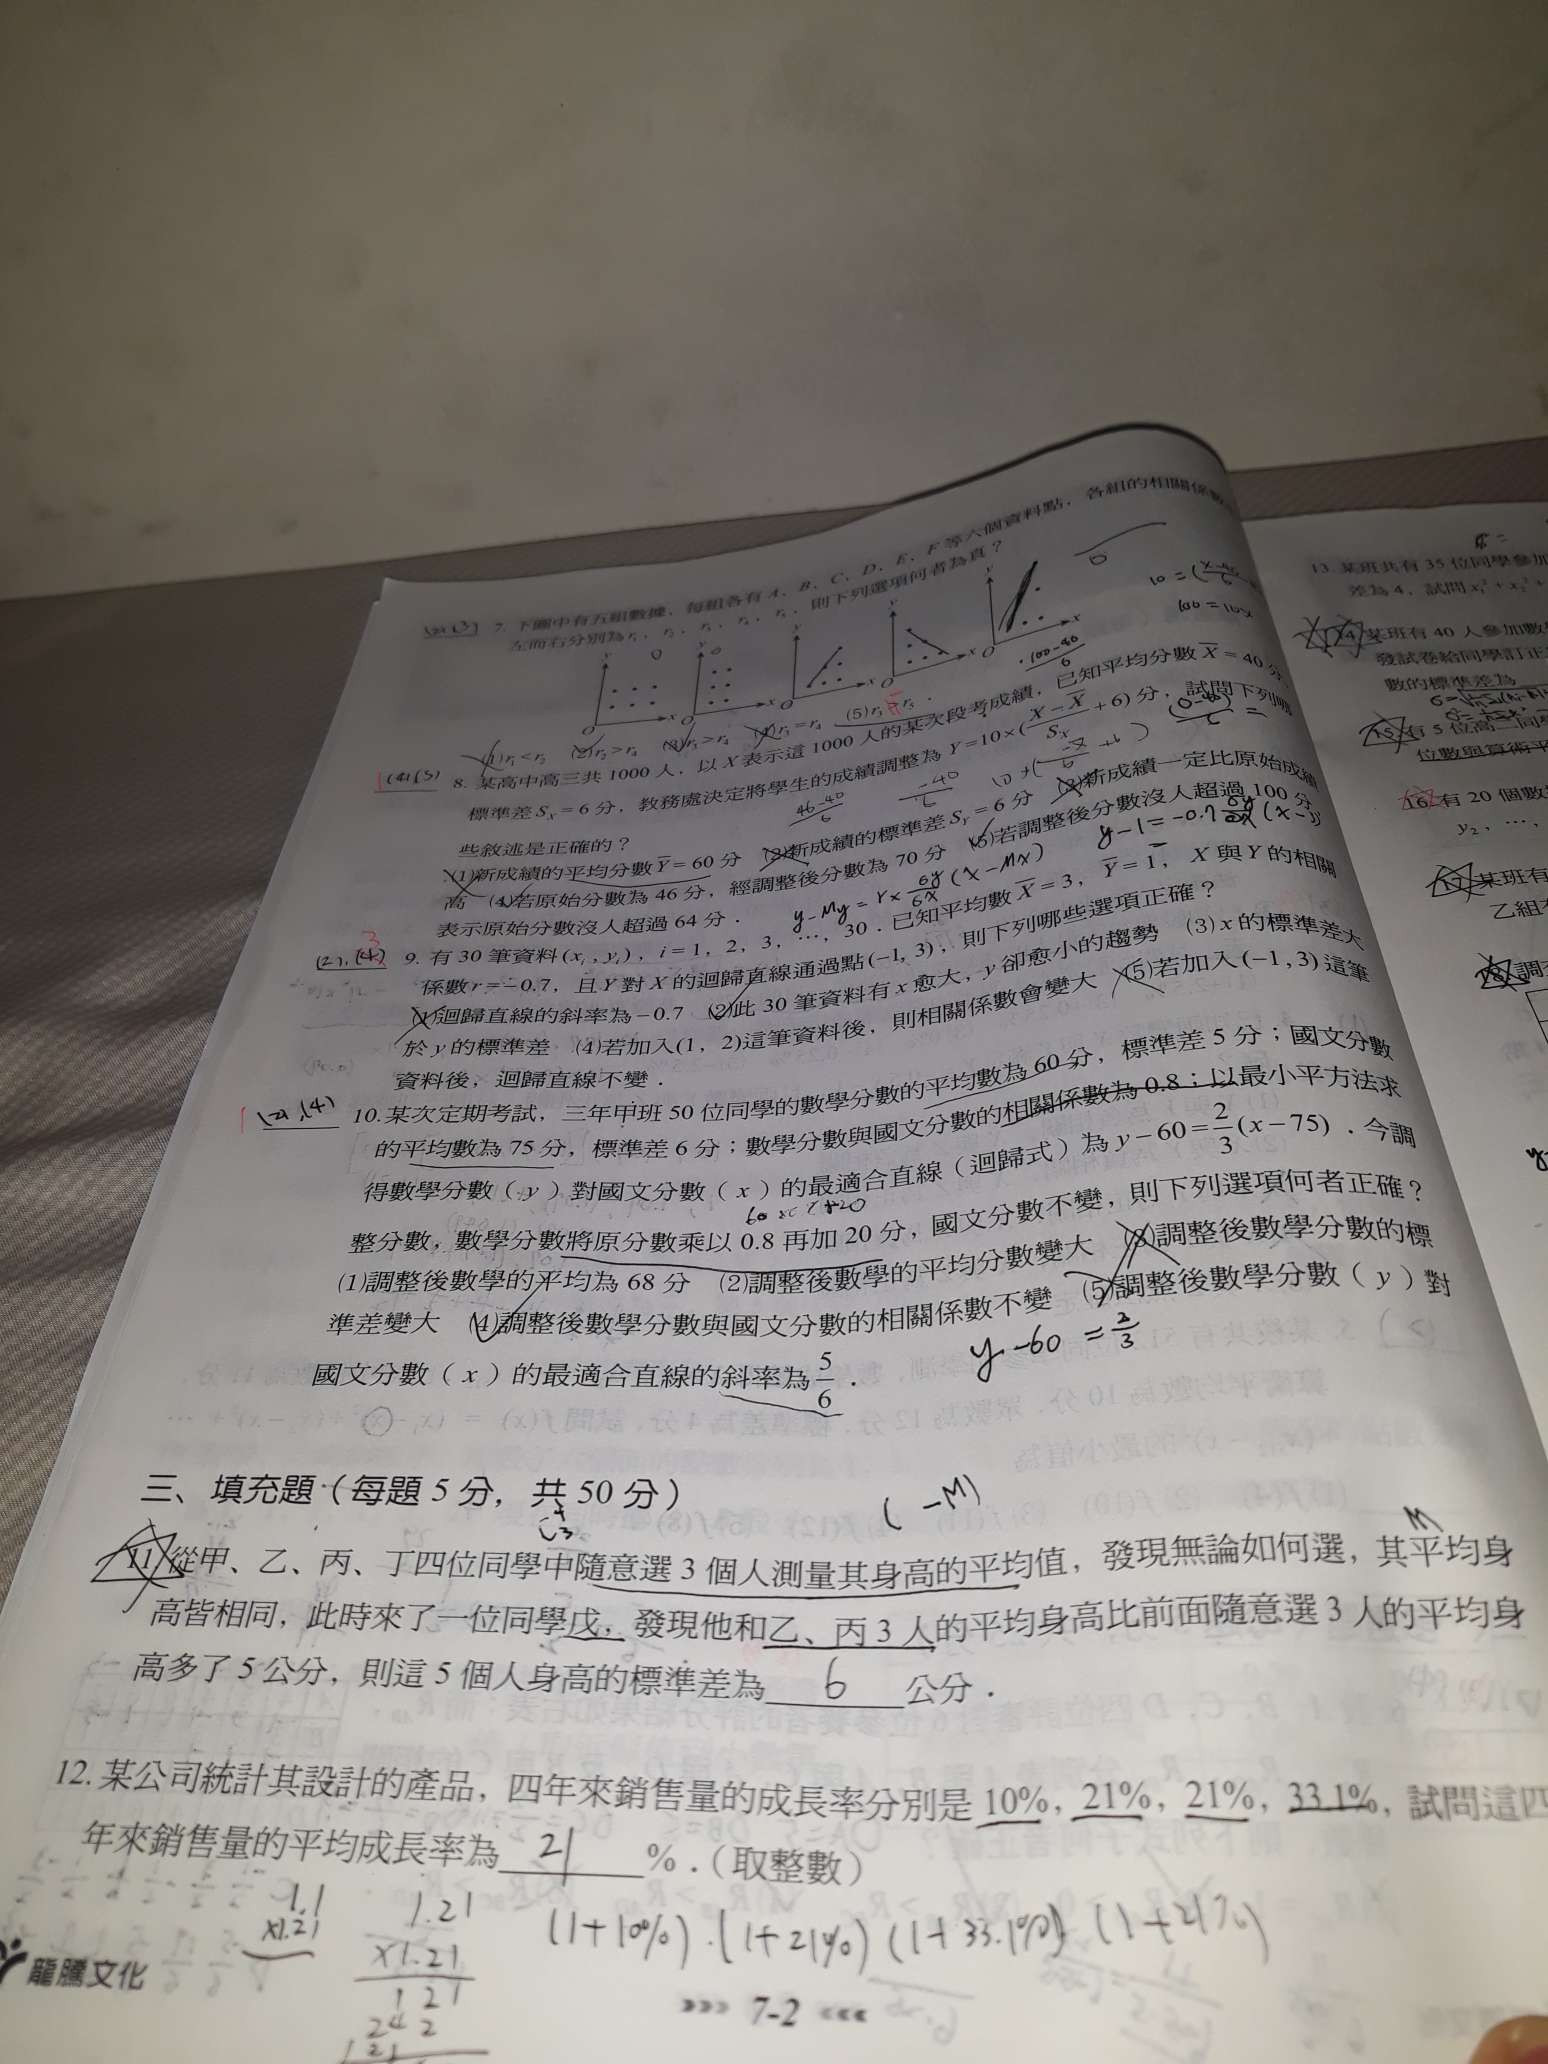 (2)(3) 7. 下圖中有五組數據，每組各有 A、B、C、D、E、F 等六個資料點，各組的相關係數
左而右分別為 r₁、r₂、r₃、r₄、r₅，則下列選項何者為真？
(1) r₁ < r₂ (2) r₂ > r₄ (3) r₃ > r₄ (4) r₃ = r₄ (5) r₃ > r₅．
(4)(5) 8. 某高中高三共 1000 人，以 X 表示這 1000 人的某次段考成績，已知平均分數 X̄ = 40 分，
標準差 Sₓ = 6 分，教務處決定將學生的成績調整為 Y = 10×((X − X̄)/Sₓ + 6) 分，試問下列哪
些敘述是正確的？
(1)新成績的平均分數 Ȳ = 60 分 (2)新成績的標準差 Sᵧ = 6 分 (3)新成績一定比原始成績
高 (4)若原始分數為 46 分，經調整後分數為 70 分 (5)若調整後分數沒人超過 100 分，
表示原始分數沒人超過 64 分．
(2),(4) 3 9. 有 30 筆資料 (xᵢ, yᵢ)，i = 1，2，3，…，30．已知平均數 X̄ = 3，Ȳ = 1，X 與 Y 的相關
係數 r = −0.7，且 Y 對 X 的迴歸直線通過點 (−1, 3)，則下列哪些選項正確？
(1)迴歸直線的斜率為 −0.7 (2)此 30 筆資料有 x 愈大，y 卻愈小的趨勢 (3) x 的標準差大
於 y 的標準差 (4)若加入(1，2)這筆資料後，則相關係數會變大 (5)若加入 (−1, 3) 這筆
資料後，迴歸直線不變．
(2),(4) 10. 某次定期考試，三年甲班 50 位同學的數學分數的平均數為 60 分，標準差 5 分；國文分數
的平均數為 75 分，標準差 6 分；數學分數與國文分數的相關係數為 0.8；以最小平方法求
得數學分數（y）對國文分數（x）的最適合直線（迴歸式）為 y − 60 = 2/3 (x − 75)．今調
整分數，數學分數將原分數乘以 0.8 再加 20 分，國文分數不變，則下列選項何者正確？
(1)調整後數學的平均為 68 分 (2)調整後數學的平均分數變大 (3)調整後數學分數的標
準差變大 (4)調整後數學分數與國文分數的相關係數不變 (5)調整後數學分數（y）對
國文分數（x）的最適合直線的斜率為 5/6．
y − 60 = 2/3
三、填充題（每題 5 分，共 50 分）
( −M)
M
11. 從甲、乙、丙、丁四位同學中隨意選 3 個人測量其身高的平均值，發現無論如何選，其平均身
高皆相同，此時來了一位同學戊，發現他和乙、丙 3 人的平均身高比前面隨意選 3 人的平均身
高多了 5 公分，則這 5 個人身高的標準差為 6 公分．
12. 某公司統計其設計的產品，四年來銷售量的成長率分別是 10%，21%，21%，33.1%，試問這四
年來銷售量的平均成長率為 21 %．（取整數）
1.1
×1.21
1.21
×1.21
121
242
121
(1+10%)·(1+21%)(1+33.1%)(1+21%)
龍騰文化
>>> 7-2 <<<
13. 某班共有 35 位同學參加
差為 4，試問 x₁² + x₂² +
14. 某班有 40 人參加數學
發試卷給同學訂正
數的標準差為
15. 有 5 位高二同學
位數與算術平
16. 有 20 個數
y₂，…，
17. 某班有
乙組
18. 調